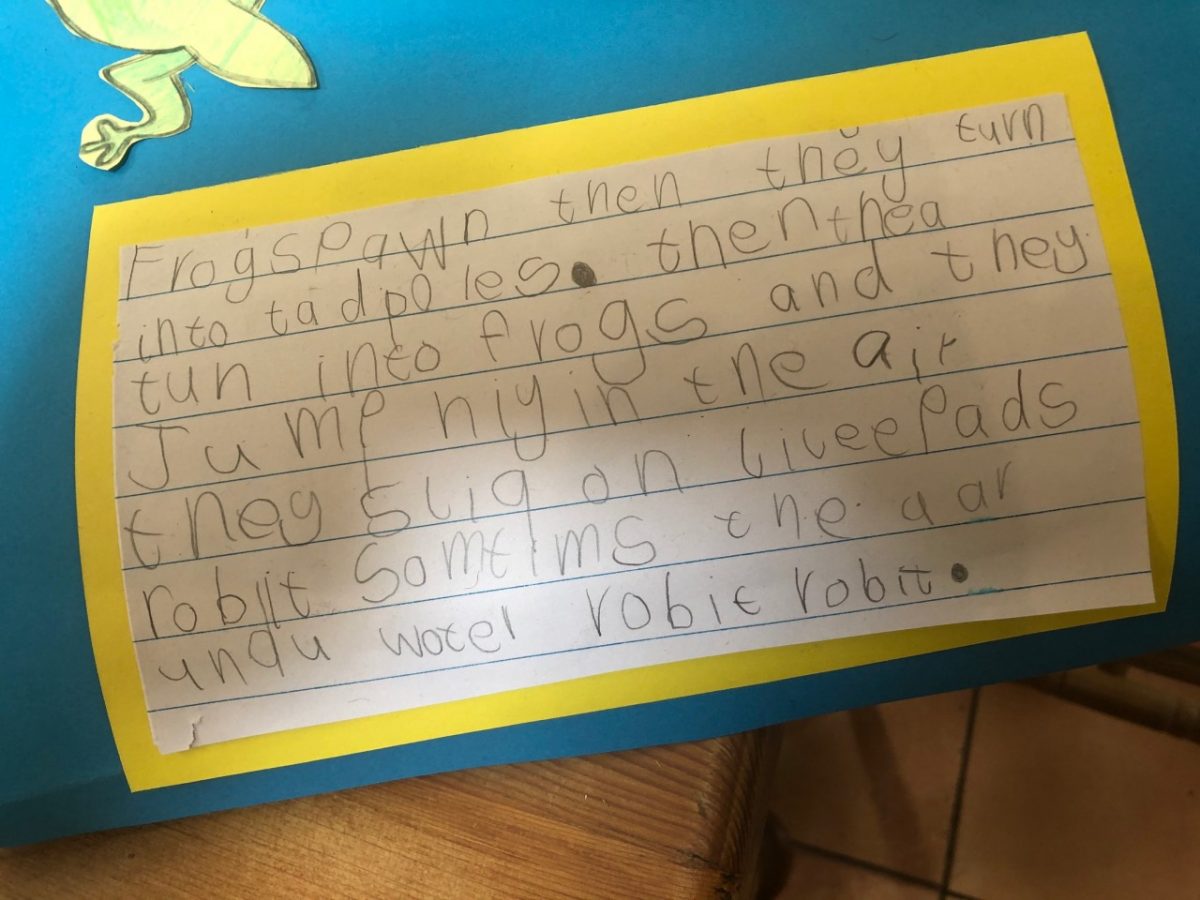 Frogspawn then they turn
into tadpoles. then thea
tun into frogs and they
Jump hiy in the air
they sliq on liveepads
robit somtims the a ar
undu wotel robit robit.